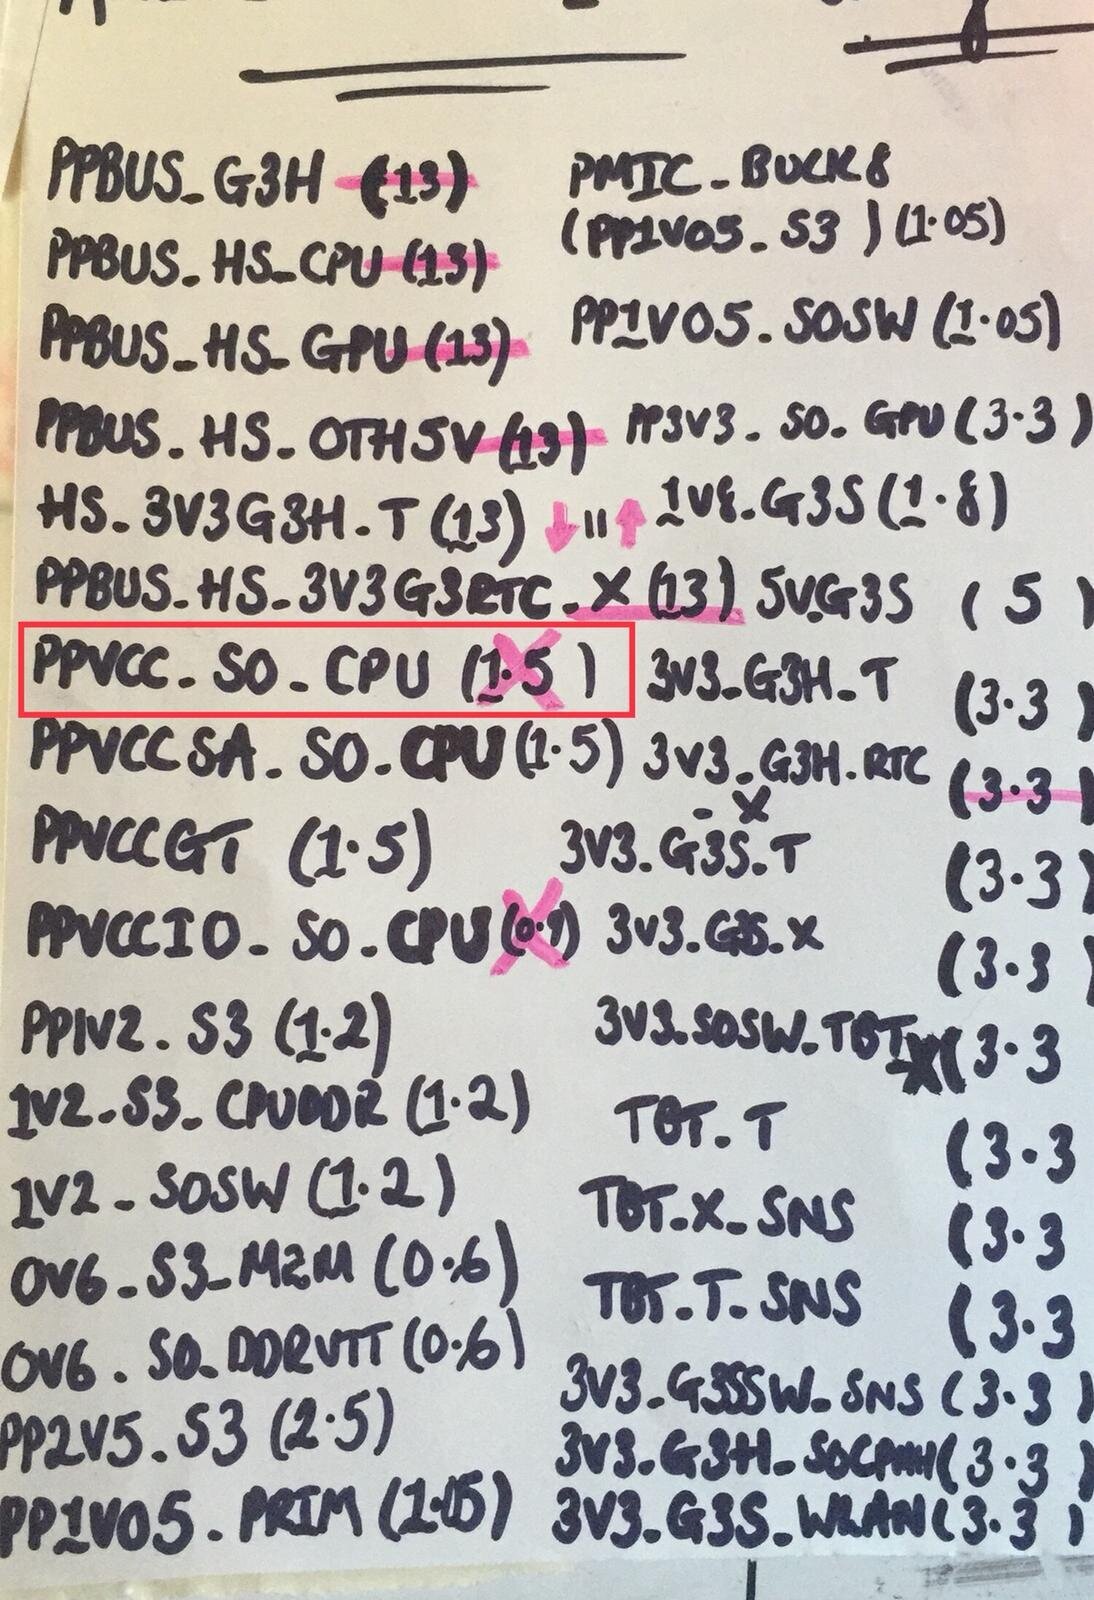 PPBUS_G3H (13)
PPBUS_HS_CPU (13)
PPBUS_HS_GPU (13)
PPBUS_HS_OTH5V (13)
HS_3V3G3H_T (13) ↓ " ↑
PPBUS_HS_3V3G3RTC_X (13)
PPVCC_S0_CPU (1.5)
PPVCCSA_S0_CPU (1.5)
PPVCCGT (1.5)
PPVCCIO_S0_CPU
PP1V2_S3 (1.2)
1V2_S3_CPUDDR (1.2)
1V2_S0SW (1.2)
0V6_S3_MEM (0.6)
0V6_S0_DDRVTT (0.6)
PP2V5_S3 (2.5)
PP1V05_PRIM (1.05)
PMIC_BUCK8
(PP1V05_S3) (1.05)
PP1V05_S0SW (1.05)
PP3V3_S0_GPU (3.3)
1V8_G3S (1.8)
5V_G3S (5)
3V3_G3H_T (3.3)
3V3_G3H_RTC (3.3)
_X
3V3_G3S_T (3.3)
3V3_G3S_X (3.3)
3V3_S0SW_TBT_X (3.3
TBT_T (3.3
TBT_X_SNS (3.3
TBT_T_SNS (3.3
3V3_G3SSW_SNS (3.3)
3V3_G3H_ (3.3)
3V3_G3S_WLAN (3.3)